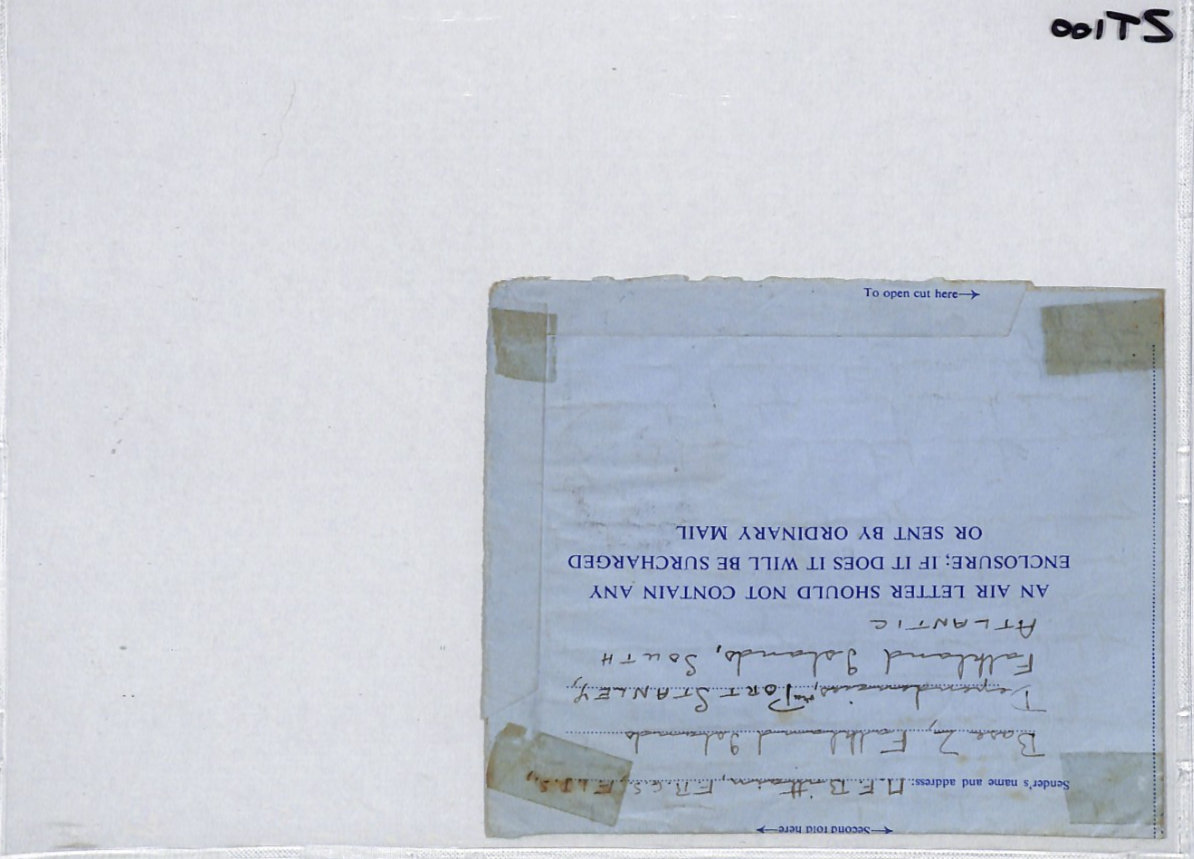 ST100
←Second fold here→
Sender's name and address:
Base Z, Falkland Islands
Dependencies, PORT STANLEY,
Falkland Islands, SOUTH
ATLANTIC
AN AIR LETTER SHOULD NOT CONTAIN ANY
ENCLOSURE; IF IT DOES IT WILL BE SURCHARGED
OR SENT BY ORDINARY MAIL
To open cut here→